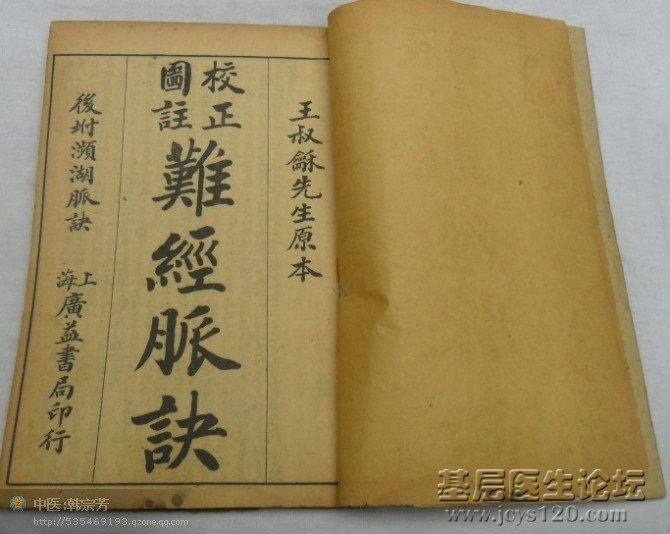 王叔龢先生原本
校正
圖註
難經脈訣
後坿瀕湖脈訣
上海
廣益書局印行
中医:韩宗芳
http://535469193.qzone.qq.com
基层医生论坛
www.jcys120.com